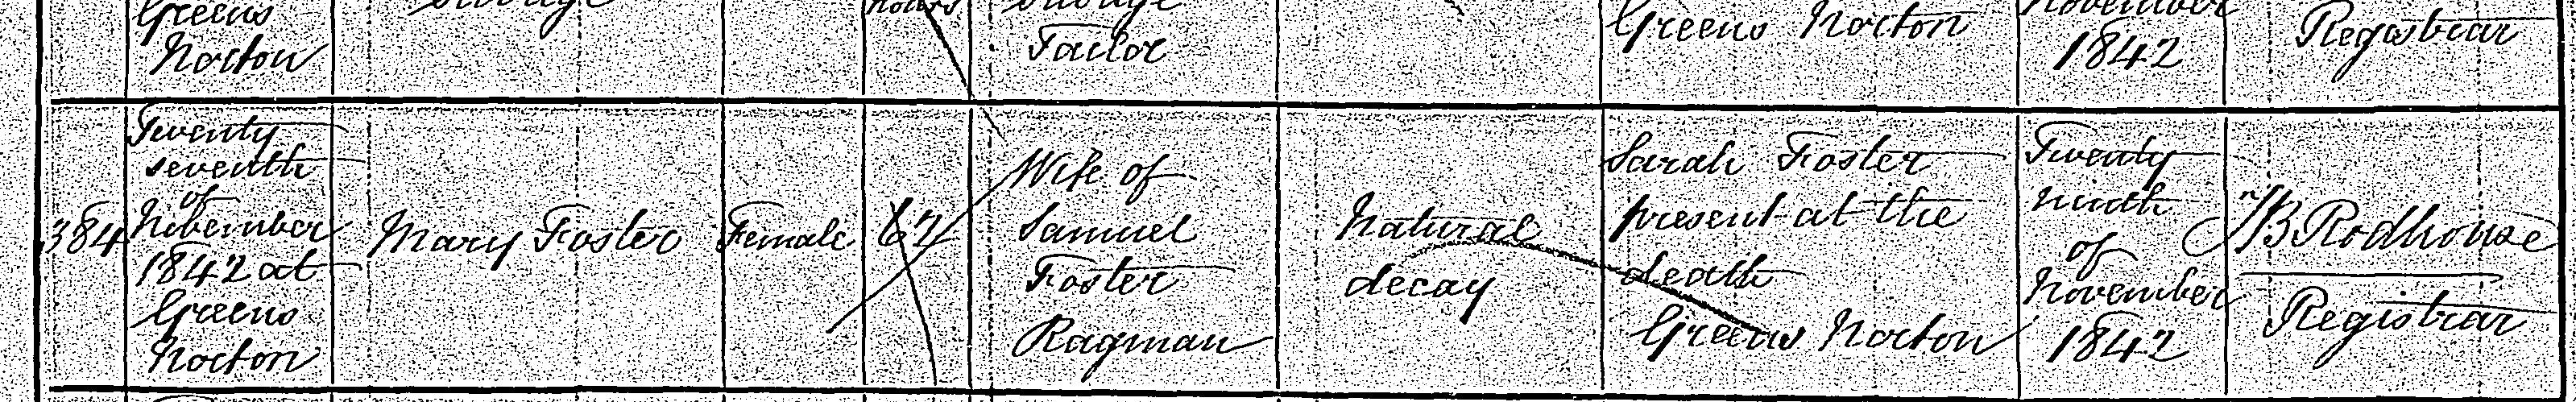 Greens
Norton
hours
Tailor
Greens Norton
November
1842
Registrar
384
Twenty
seventh
of
November
1842 at
Greens
Norton
Mary Foster
Female
Wife of
Samuel
Foster
Ragman
Natural
decay
Sarah Foster
present at the
death
Greens Norton
Twenty
ninth
of
November
1842
Rodhouse
Registrar